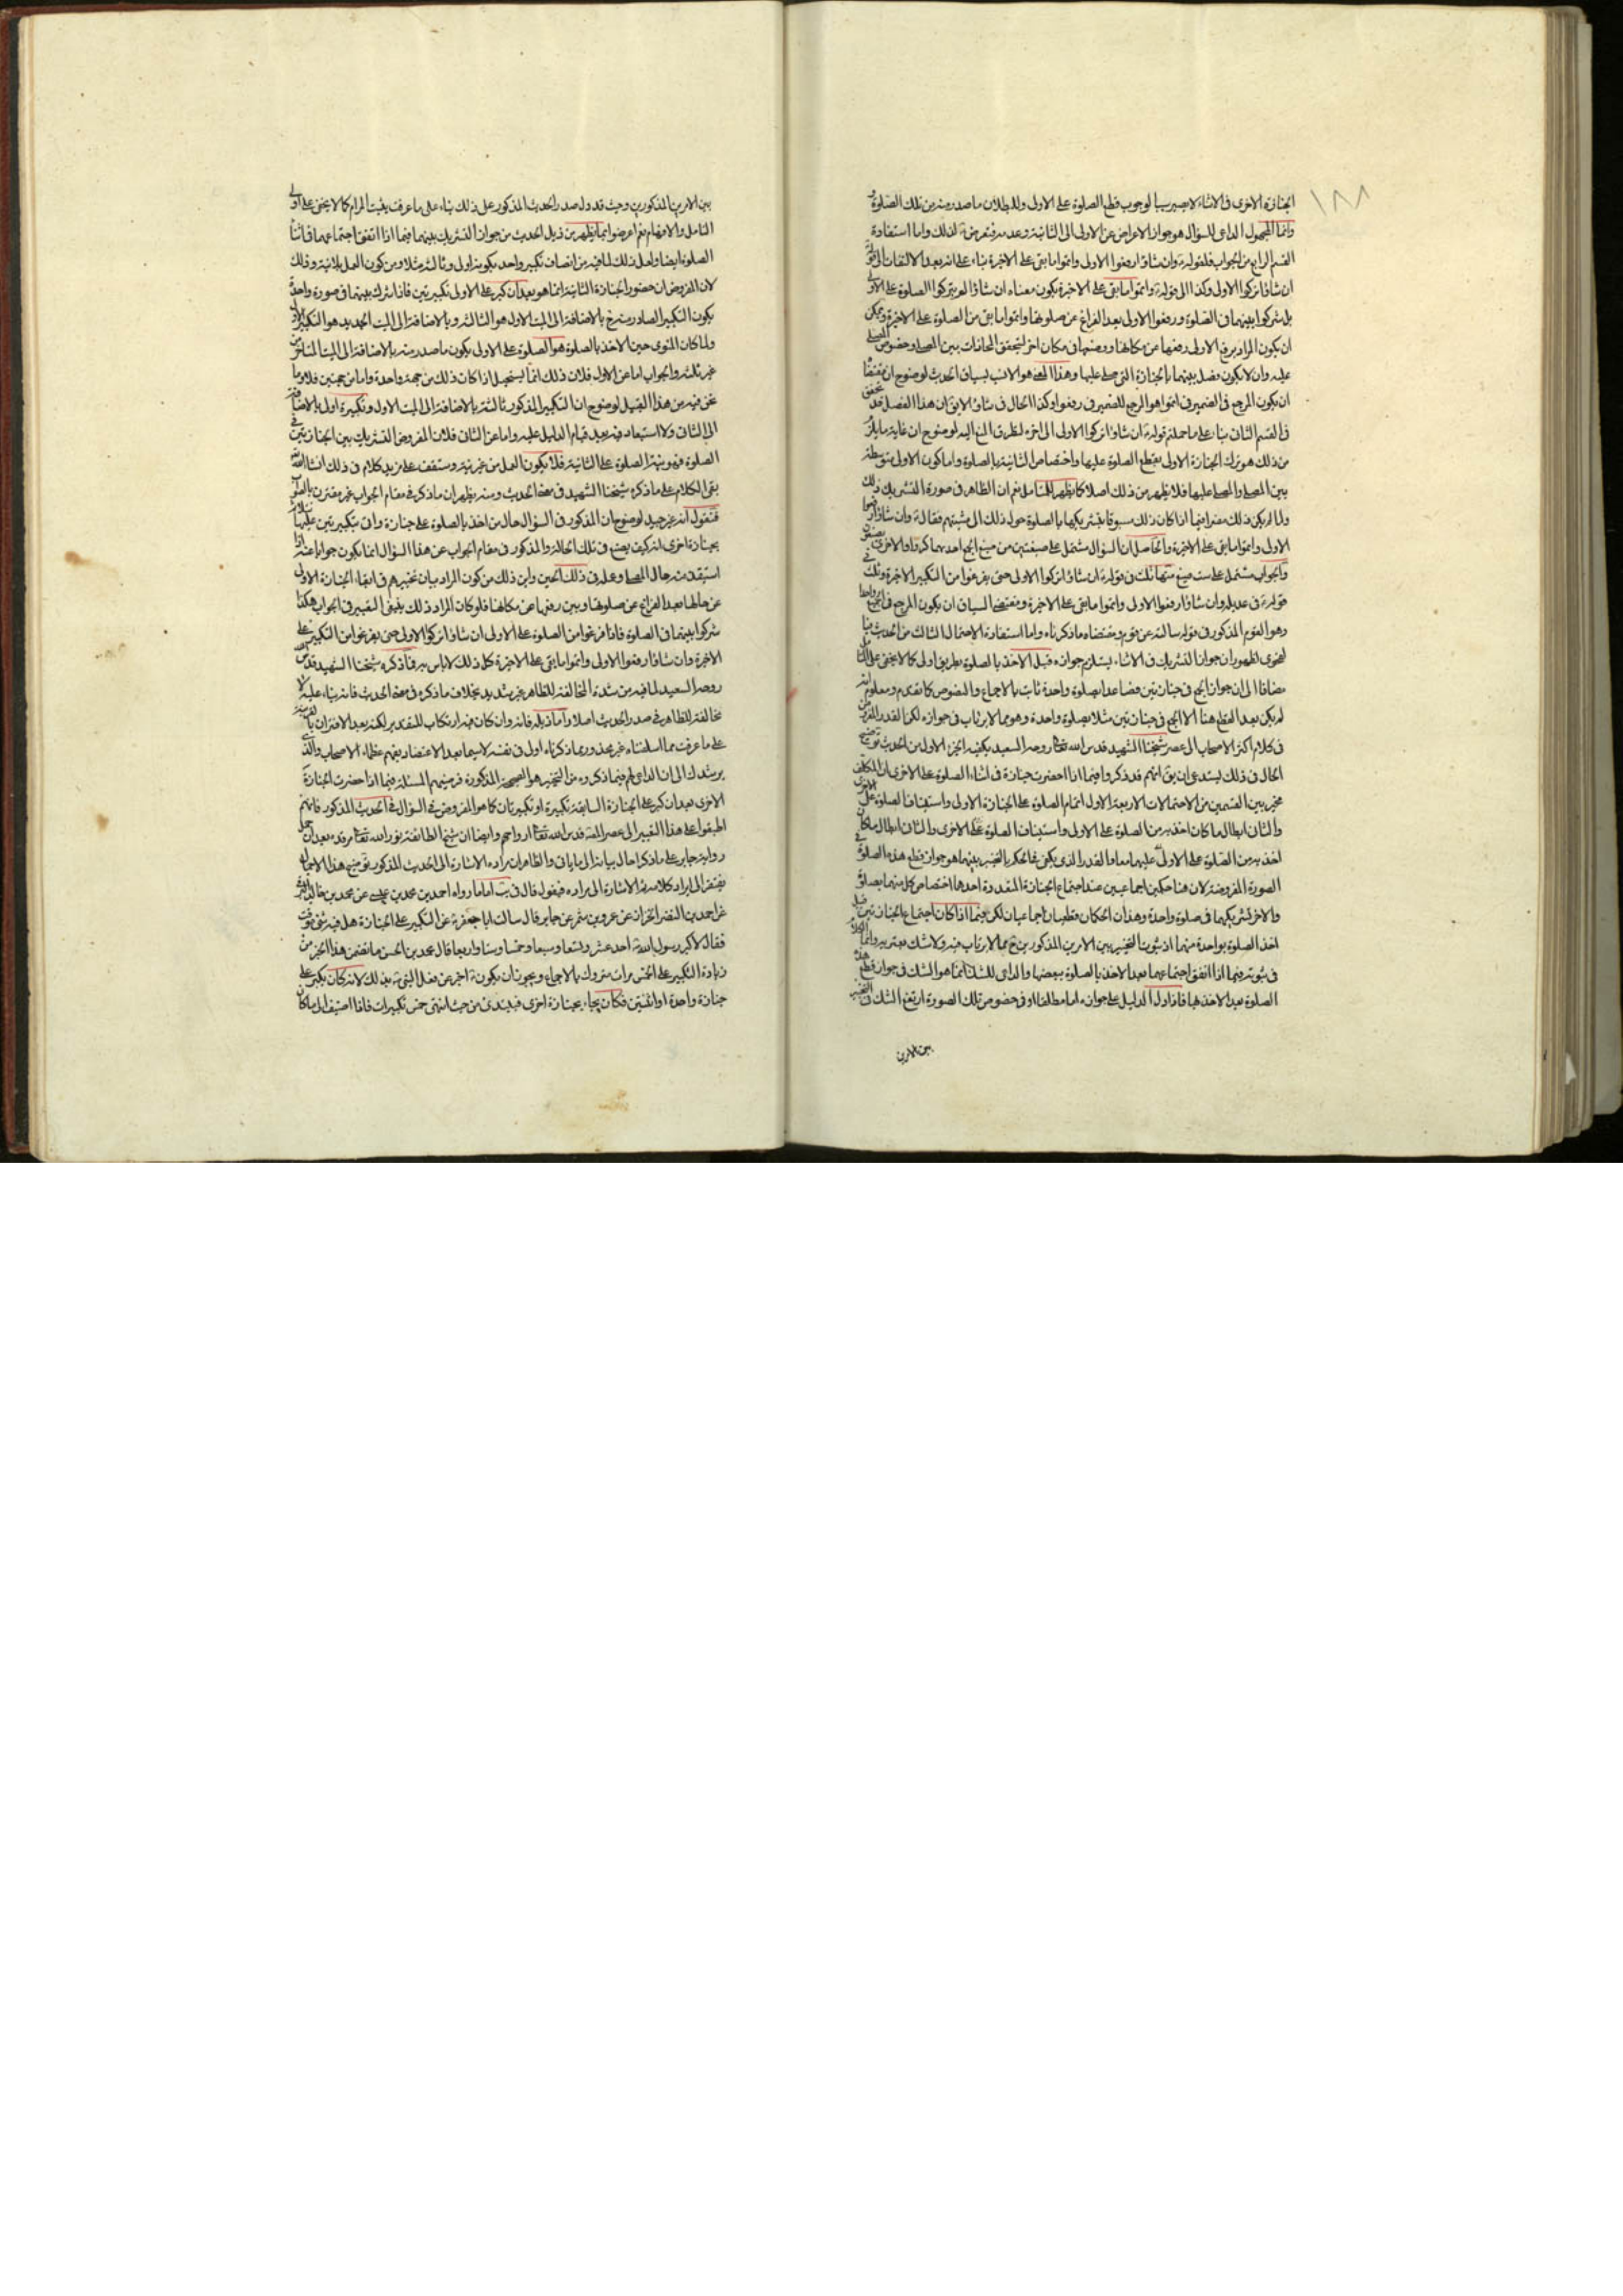 ١٨٨
الجنازة الاخرى فى الاثناء لا يصير سببا لوجوب قطع الصلوة على الاولى ولا لبطلان ما صدر منه من تلك الصلوة
وانما المجهول الداعى للسؤال هو جواز الاعراض عن الاولى الى الثانية وعدمه فتعرض لذلك واما استفادة
القسم الرابع من الجواب فلقوله وان شاؤا رفعوا الاولى واتموا ما بقى على الاخيرة بناء على انه بعد الالتفات الى قوله
ان شاؤا تركوا الاولى وكذا الى قوله واتموا ما بقى على الاخيرة يكون معناه ان شاؤا لم يتركوا الصلوة على الاولى
بل شركوا بينهما فى الصلوة ورفعوا الاولى بعد الفراغ عن صلوتها واتموا ما بقى من الصلوة على الاخيرة ويمكن
ان يكون المراد برفع الاولى رفعها عن مكانها ووضعها فى مكان اخر لتحقق المحاذات بين المصلى وخصوص المصلى
عليه وان لا يكون فصل بينهما بالجنازة التى صلى عليها وهذا المعنى هو الانسب بسياق الحديث لوضوح ان مقتضا
ان يكون المرجع فى الضمير فى اتموا هو المرجع للضمير فى رفعوا وكذا الحال فى شاؤا لا يق ان هذا الفصل قد تحقق
فى القسم الثانى بناء على ما حملتم قوله ان شاؤا تركوا الاولى الى اخره لتطرق المنع اليه لوضوح ان غاية ما يلزم
من ذلك هو ترك الجنازة الاولى بقطع الصلوة عليها واختصاص الثانية بالصلوة واما كون الاولى متوسطة
بين المصلى والمصلى عليها فلا يظهر من ذلك اصلا كما يظهر للمتأمل نعم ان الظاهر فى صورة التشريك ذلك
الاولى واتموا ما بقى على الاخيرة والحاصل ان السؤال مشتمل على صيغتين من صيغ الجمع احديهما كبروا والاخرى
والجواب مشتمل على ست صيغ منها ثلث فى قوله ان شاؤا تركوا الاولى حتى يفرغوا من التكبير على الاخيرة وثلث فى
قوله فى عديله وان شاؤا رفعوا الاولى واتموا ما بقى على الاخيرة ومقتضى السياق ان يكون المرجع فى الجميع واحدا
وهو القوم المذكور فى قوله سالته عن قوم ومقتضاه ما ذكرناه واما استفادة الاحتمال الثالث من الحديث
لفحوى لظهور ان جواز التشريك فى الاثناء يستلزم جوازه قبل الاخذ بالصلوة بطريق اولى كما لا يخفى على
مضافا الى ان جواز الجمع فى جنازتين فصاعدا بصلوة واحدة ثابت بالاجماع والنصوص كما تقدم ومعلوم انه
لم يكن بعد القطع هنا الا الجمع فى جنازتين مثلا بصلوة واحدة وهو مما لا يرتاب فى جوازه لكن القدر
فى كلام اكثر الاصحاب الى عصر شيخنا الشهيد قدس الله تعالى روحه السعيد يكفيه الجزء الاول من الحديث توضيح
الحال فى ذلك يستدعى ان يق انهم قد ذكروا فيما اذا احضرت جنازة فى اثناء الصلوة على الاخرى ان المكلف
مخير بين القسمين من الاحتمالات الاربعة الاول اتمام الصلوة على الجنازة الاولى واستيناف الصلوة على الاخرى
والثانى ابطال ما كان اخذ به من الصلوة على الاولى واستيناف الصلوة على الاخرى والثانى ابطال ما كان
اخذ به من الصلوة على الاولى عليهما معا والقدر الذى يكفى فى الحكم بالتخيير بينهما هو جواز قطع هذه الصلوة فى
الصورة المفروضة لان هنا حكمين اجماعيين عند اجتماع الجنازة المتعددة احدها اختصاص كل منهما بصلوة
والاخر تشريكهما فى صلوة واحدة وهذان الحكمان قطعيان اجماعيان لكن فيما اذا كان اجتماع الجنازتين قبل
اخذ الصلوة بواحدة منهما اذ ثبوت التخيير بين الامرين المذكورين ح مما لا يرتاب فيه ولا شك يعتريه وانما الكلام
فى ثبوته فيما اذا اتفق اجتماعهما بعد الاخذ بالصلوة ببعضها والداعى للشك انما هو الشك فى جواز قطع هذه
الصلوة بعد الاخذ بها فاذا دل الدليل على جوازه اما مطلقا او فى خصوص تلك الصورة ارتفع الشك فى التخيير
بين الامرين
بين الامرين المذكورين وحيث قد دل صدر الحديث المذكور على ذلك بناء على ما عرفت يثبت المرام كما لا يخفى على اولى
التامل والافهام نعم اعرضوا عما يظهر من ذيل الحديث من جواز التشريك بينهما فيما اذا اتفق اجتماعهما فى اثناء
الصلوة ايضا ولعل ذلك لما فيه من اتصاف تكبير واحد بكونه اول وثالثه مثلا ومن كون العمل بلا نية وذلك
لان المفروض ان حضور الجنازة الثانية انما هو بعد ان كبر على الاولى تكبيرتين فاذا شرك بينهما فى صورة واحدة
يكون التكبير الصادر منه ح بالاضافة الى الميت الاول هو الثالثه وبالاضافة الى الميت الجديد هو التكبير الاول
ولما كان المنوى حين الاخذ بالصلوة هو الصلوة على الاولى يكون ما صدر منه بالاضافة الى الميت المتاخر من
غير نية والجواب اما عن الاول فلان ذلك انما يستحيل اذا كان ذلك من جهة واحدة واما من جهتين فلا وما
نحن فيه من هذا القبيل لوضوح ان التكبير المذكور ثالثة بالاضافة الى الميت الاول وتكبيرة اولى بالاضافة
الى الثانى ولا استبعاد فيه بعد قيام الدليل عليه واما عن الثانى فلان المفروض التشريك بين الجنازتين فى
الصلوة فهو ينوى الصلوة على الثانية فلا يكون العمل من غير نية وستقف على مزيد كلام فى ذلك انشاء الله
بقى الكلام على ما ذكره شيخنا الشهيد فى معنى الحديث ومنه يظهر ان ما ذكره فى مقام الجواب غير مقترن بالصواب
فنقول انه غير جيد لوضوح ان المذكور فى السؤال حال من اخذ بالصلوة على جنازة واتى بتكبيرتين عليها
بجنازة اخرى انه كيف يصنع فى تلك الحالة والمذكور فى مقام الجواب عن هذا السؤال انما يكون جوابا عنه اذا
استفيد منه حال المصلى وعمله فى ذلك الحين واين ذلك من كون المراد بيان تخييرهم فى ابقاء الجنازة الاولى
عن حالها بعد الفراغ عن صلوتها وبين رفعها عن مكانها فلو كان المراد ذلك ينبغى التعبير فى الجواب هكذا
شركوا بينهما فى الصلوة فاذا فرغوا من الصلوة على الاولى ان شاؤا تركوا الاولى حتى يفرغوا من التكبير على
الاخيرة وان شاؤا رفعوا الاولى واتموا ما بقى على الاخيرة كل ذلك لا باس به فما ذكره شيخنا الشهيد قدس الله
روحه السعيد لما فيه من شدة المخالفة للظاهر غير سديد بخلاف ما ذكره فى معنى الحديث فانه بناء عليه لا
مخالفة للظاهر فى صدر الحديث اصلا واما ذيله فانه وان كان فيه ارتكاب للتقدير لكنه بعد الاقتران بالقرينة
على ما عرفت مما اسلفناه غير محذور بما ذكرناه اولى فى نفسه لا سيما بعد الاعتضاد بفهم عظماء الاصحاب والذى
يرشدك الى ان الداعى لهم فيما ذكروه من التخيير هو الصحيحة المذكورة فرضهم المسئلة فيما اذا حضرت الجنازة
الاخرى بعد ان كبر على الجنازة السابقة تكبيرة او تكبيرتان كما هو المفروض فى السؤال فى الحديث المذكور فانهم
اطبقوا على هذا التعبير الى عصر المصنف قدس الله تعالى ارواحهم وايضا ان شيخ الطائفة نور الله تعالى مرقده بعد ان حمل
رواية جابر على ما ذكر احال بيانه الى ما ياتى والظاهر ان مراده الاشارة الى الحديث المذكور توضيح هذا الاجمال
يفتقر الى ايراد كلامه ثم الاشارة الى مراده فنقول قال فى يب اما ما رواه احمد بن محمد بن عيسى عن محمد بن خالد البرقى
عن احمد بن النضر الخزاز عن عمرو بن شمر عن جابر قال سالت ابا جعفر عن التكبير على الجنازة هل فيه شئ موقت
فقال لا كبر رسول الله احد عشر وتسعا وسبعا وخمسا وستا واربعا قال محمد بن الحسن ما تضمن هذا الخبر من
زيادة التكبير على الخمس مرات متروك بالاجماع ويجوز ان يكون اخبر عن فعل النبى بذلك لانه كان يكبر على
جنازة واحدة او اثنتين فكان يجاء بجنازة اخرى فيبتدى من حيث انتهى خمس تكبيرات فاذا اضيف الى ما كان